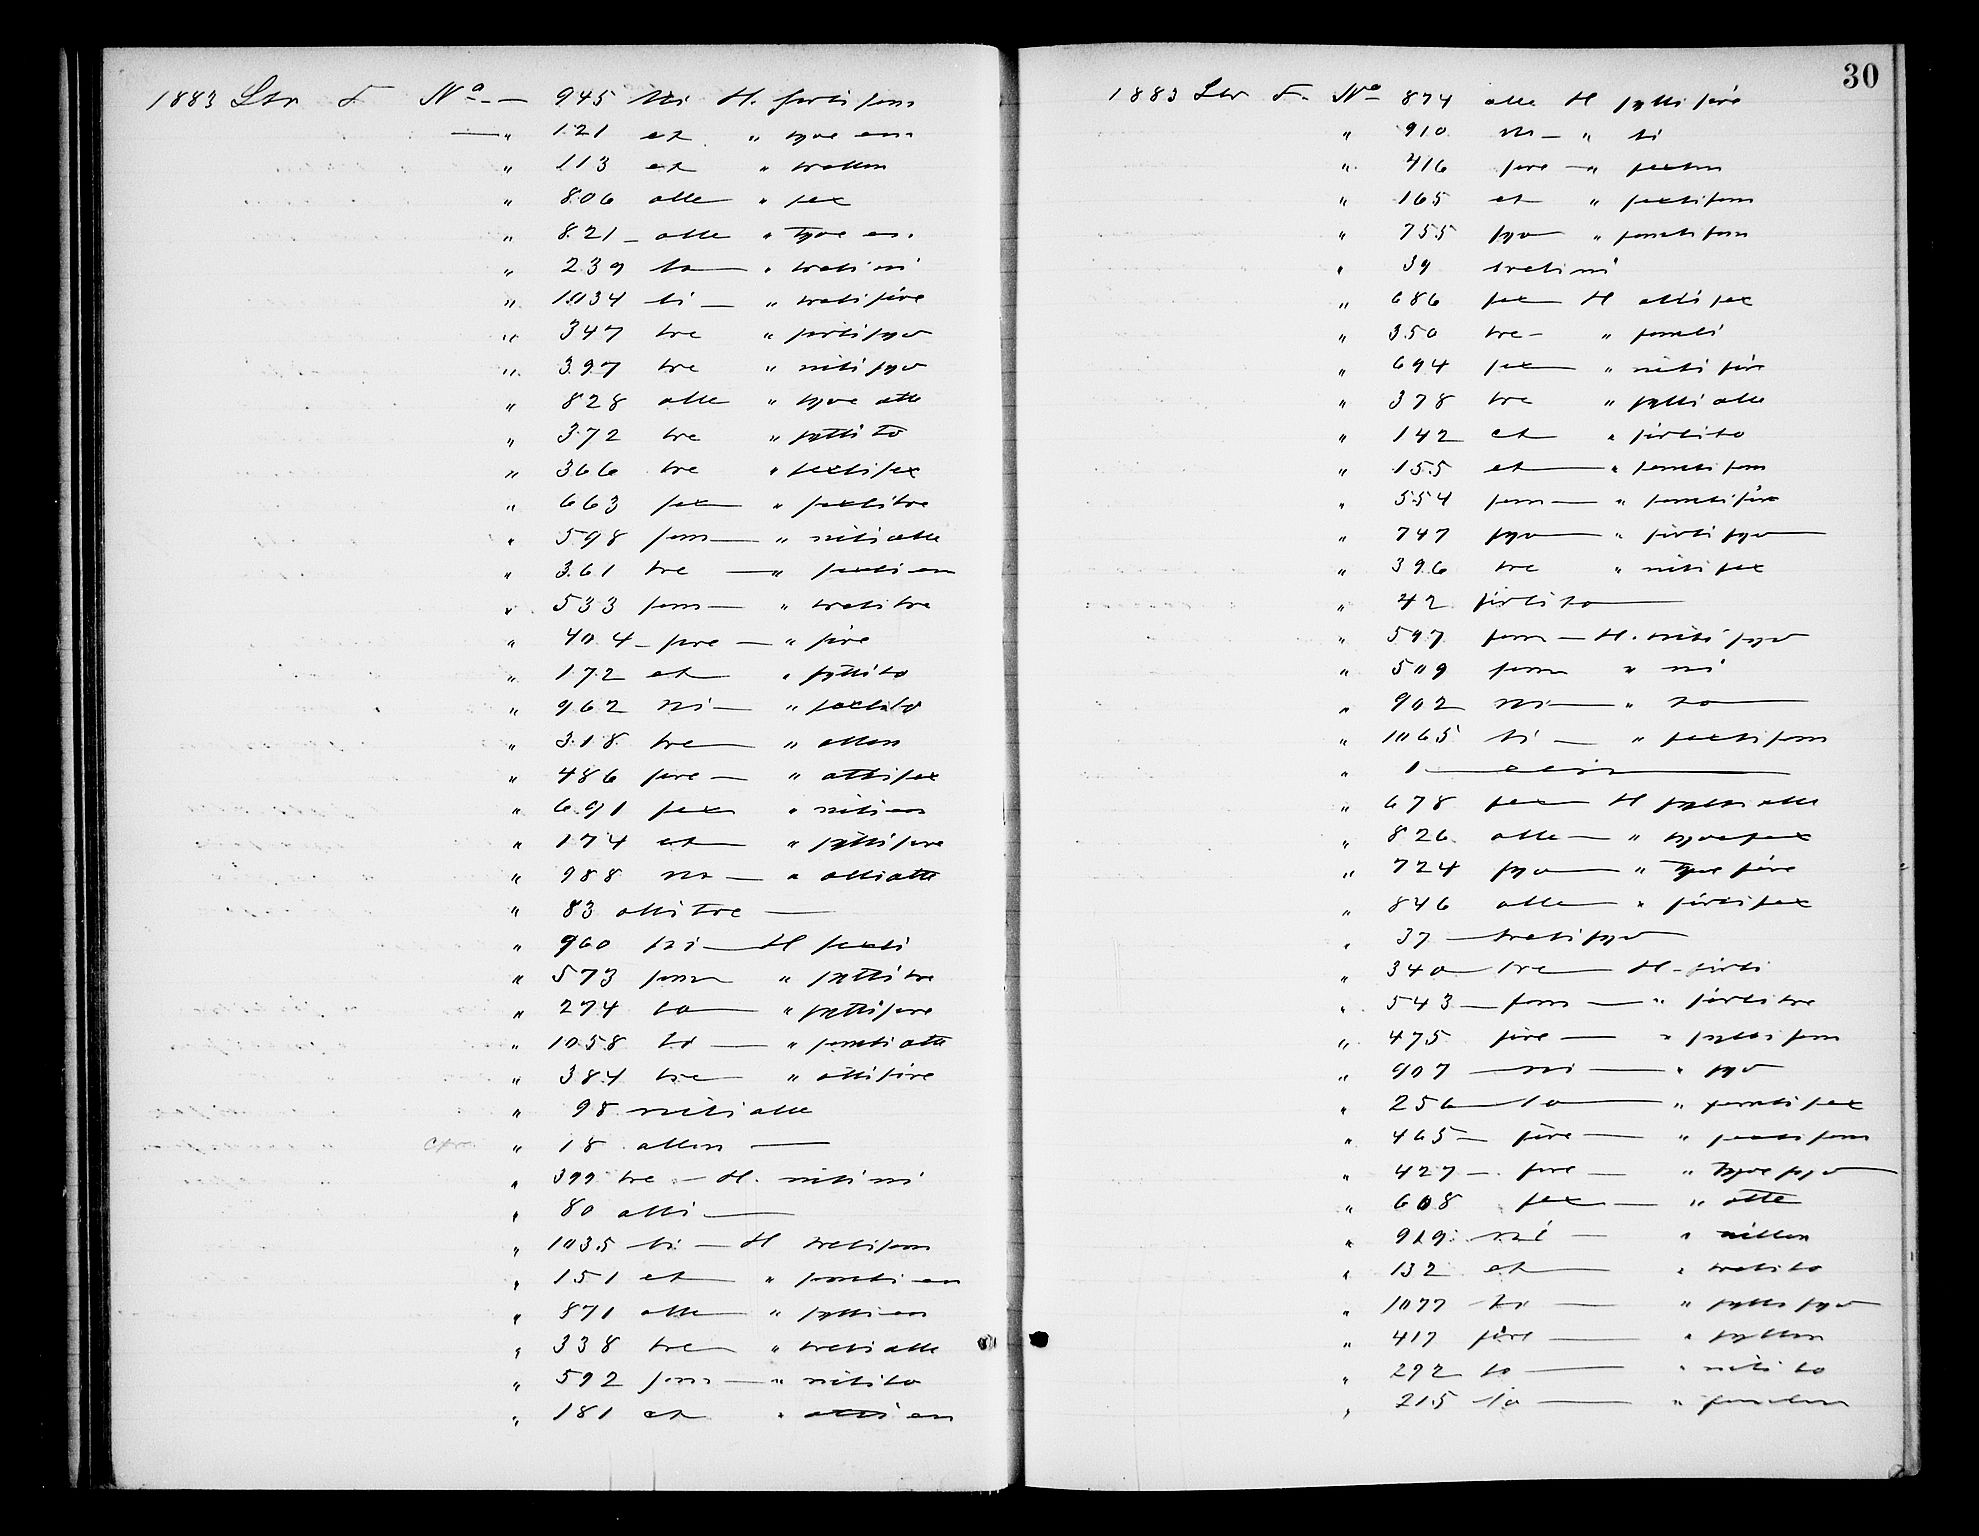 1883 Ltr F No — 945 Ni H. førti fem
— " 121 et " tyve en.
" 113 et " tretten
" 806 otte " sex
" 821 – otte " Tyve en.
" 239 to — " treti ni
" 1034 ti — " treti fire
" 347 tre " førti syv
" 397 tre " niti syv
" 828 otte " tyve otte
" 372 tre " sytti to
" 366 tre " sexti sex
" 663 sex " sexti tre
" 598 fem — " niti otte
" 361 tre — " sexti en
" 533 fem — " treti tre
" 404 – fire — " fire
" 172 et — " sytti to
" 962 ni — " sexti to
" 318 tre — " atten
" 486 fire — " otti sex
" 691 sex " niti en
" 174 et — " sytti fire
" 988 ni — " otti otte
" 83 otti tre —
" 960 ni — H sexti
" 573 fem " sytti tre
" 274 to — " sytti fire
" 1058 ti — " femti otte
" 384 tre — " otti fire
" 98 niti otte
" 18 atten —
" 399 tre – H. niti ni
" 80 otti —
" 1035 ti – H treti fem
" 151 et " femti en
" 871 otte " sytti en
" 338 tre — " treti otte
" 592 fem — " niti to
" 181 et " otti en
30
1883 Ltr F. No 874 otte H sytti fire
" 910 ni — " ti
" 416 fire — " sexten
" 165 et " sexti fem
" 755 syv " femti fem
" 39 treti ni
" 686 sex H otti sex
" 350 tre – " femti
" 694 sex — " niti fire
" 378 tre " sytti otte
" 142 et " førti to
" 155 et — " femti fem
" 554 fem — " femti fire
" 747 syv — " førti syv —
" 396 tre " niti sex
" 42 førti to —
" 597 fem – H. niti syv
" 509 fem " ni
" 902 ni — " to —
" 1065 ti — " sexti fem
" 1 — een —
" 678 sex H sytti otte
" 826 otte — " tyve sex
" 724 syv — " Tyve fire
" 846 otte " førti sex
" 37 — treti syv
" 340 — tre — H – førti
" 543 — fem — " førti tre
" 475 fire — " sytti fem
" 907 — ni — " syv
" 256 — to — " femti sex
" 465 – fire — " sexti fem
" 427 – fire — " Tyve syv
" 608 sex — " otte
" 919 ni — " nitten
" 132 et — " treti to
" 1077 ti — " sytti syv
" 417 fire — " sytten
" 292 to — " niti to
" 215 to — " femten